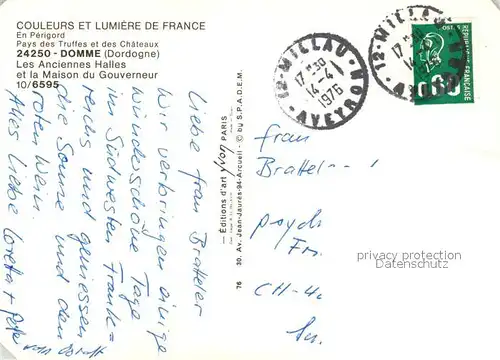 COULEURS ET LUMIÈRE DE FRANCE
En Périgord
Pays des Truffes et des Châteaux
24250 - DOMME (Dordogne)
Les Anciennes Halles
et la Maison du Gouverneur
10/6595
Liebe Frau Bratteler
Wir verbringen einige
wunderschöne Tage
im Südwesten Frank=
reichs und geniessen
die Sonne und den
roten Wein.
Alles Liebe Loreta + Peter
— Éditions d'art yvon PARIS
30, Av. Jean-Jaurès-94-Arcueil - © by S.P.A.D.E.M.
76
12-MILLAU
17-30
14-4
1976
AVEYRON
12-MILLAU
AVEYRON
FRANÇAISE
Frau
Brattel
psych
CH-4
privacy protection
Datenschutz